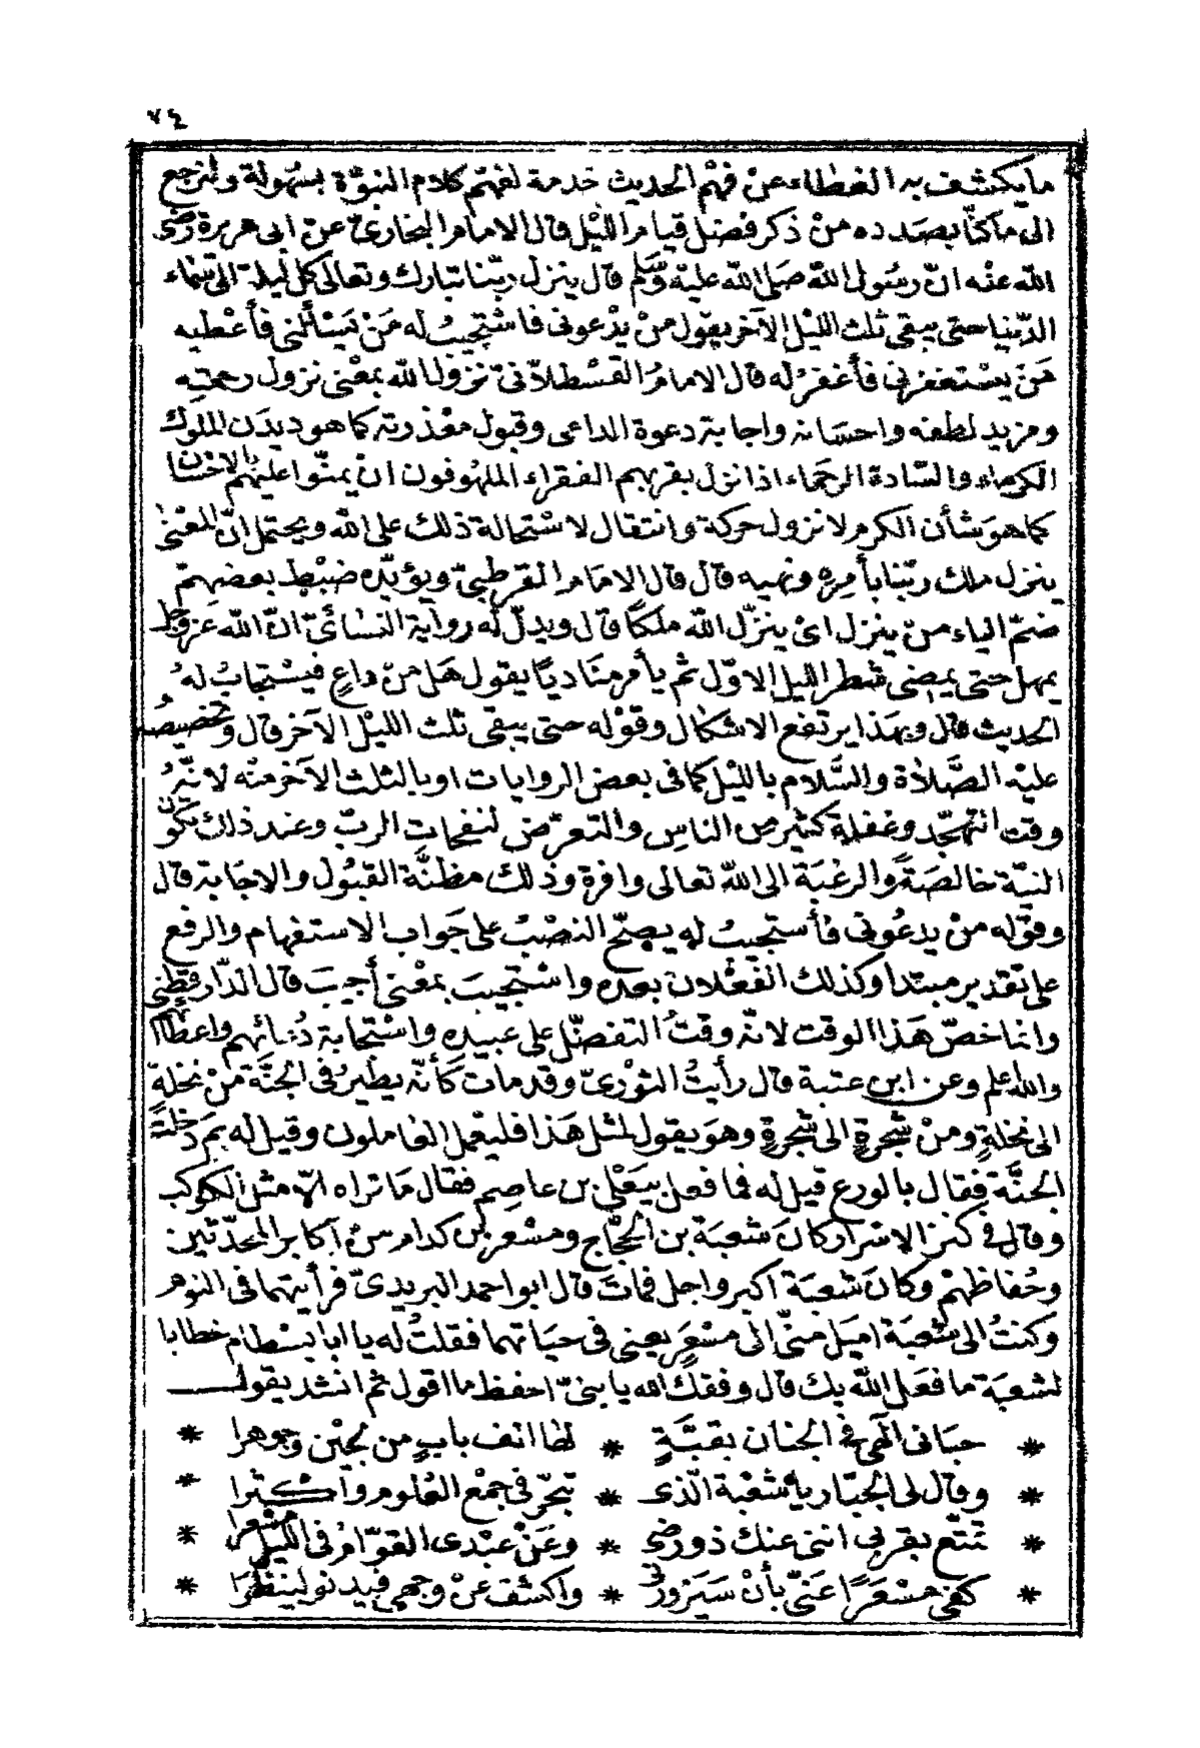 ٧٤
ما يكشف به الغطاء عن فهم الحديث خدمة لفهم كلام النبوّة بسهولة ولنرجع
الى ماكنّا بصدده منْ ذكر فضل قيام الليْل قال الامام البخارىّ عنْ ابى هريرة رضى
الله عنْه انّ رسُول اللهّ صَلى الله عليْه وسَلم قال ينزل ربّنا تبارك وتعالى كل ليلة الى سَماء
الدّنيا حتى يبقى ثلث الليْل الآخر يقول منْ يدْعونى فاسْتجيبُ له مَنْ يَسْألنى فأعْطيه
مَنْ يسْتغفرنى فأغفرُ له قال الامامُ القسْطلاّنىّ نزول الله بمعْنى نزول رحمتِه
ومزيد لطفه واحسَانه واجابة دعوة الداعى وقبول معْذرته كما هو ديدَن الملوك
الكرماء والسّادة الرحماء اذا نزل بقربهم الفقراء الملهُوفون انْ يمنّوا عليْهم بالاحْسَان
كما هوَ شأن الكرم لا نزول حركة وانتقال لاسْتحالة ذلك على الله ويحتمل انّ المعْنى
ينزل ملك ربّنا بأمره ونهيه قال قال الامام القرطبىّ ويؤيّده ضبْط بعضهمْ
ضمّ الياء منْ ينزل اىْ ينزّل الله ملكًا قال ويدلّ له رواية النسَائىّ انّ الله عزوجل
يمهل حتى يمضى شطر الليل الاوّل ثم يأمر مناديًا يقول هَل منْ داعٍ فيسْتجابُ لهُ
الحديث قال وبهذا يرتفع الاشكال وقوْله حتى يبقى ثلث الليْل الآخر قال وتخصيصه
عليْه الصَّلاة والسَّلام بالليْل كما فى بعض الروايات او بالثلث الآخر منْه لانّهُ
وقت التهجّد وغفلة كثير من الناس والتعرّض لنفحات الربّ وعند ذلك تكون
النيّة خالصَة والرغبَة الى اللهّ تعالى وافرة وذلك مظنَّة القبُول والاجابة قال
وقوْله منْ يدعُونى فأستجيبُ له يصحّ النصْبُ على جَواب الاستفهام والرفع
على تقدير مبتدا وكذلك الفعْلان بعده واسْتجيبَ بمعْنى أجيبَ قال الدّارقطنى
وانما خصّ هَذا الوقت لانّه وقتُ التفضّل على عبيده واسْتجابة دُعائهم واعطائهم
والله اعلم وعن ابن عتبة قال رأيتُ الثوْرىّ وقد مات كأنّه يطيرُ فى الجنَّة منْ نخلةٍ
الى نخلةٍ ومنْ شجرةٍ الى شجرةٍ وهوَ يقول لمثل هَذا فليعْمل العاملون وقيل له بمَ دخلتَ
الجنَّة فقال بالورع قيل له فما فعل بيَعْلى بن عاصم فقال مَا نراه الاّ مثل الكوكب
وقال فى كنز الاسْرار كانَ شعبَة بن الحجّاج ومسْعر بْن كدام منْ اكابر المحدّثين
وحُفاظهمْ وكانَ شعبَة اكبر واجل فماتَ قال ابو احمد البريدىّ فرأيتهما فى النوم
وكنتُ الى شعبَة اميَل منّى الى مسْعَر يعنى فى حيَاتهما فقلتُ له يا ابا بسْطام خطابا
لشعبَة ما فعَل الله بك قال وفقك الله يا بنىّ احفظ ما اقول ثم انشد يقول
* حبَانى الهى فى الجنان بقبَّةٍ * لها الف بابٍ من لجيْن وجوهرا *
* وقال لى الجبّار يا شعْبة الّذى * تبحّر فى جمْع العُلوم واكثرا *
* تمتّع بقربى اننى عنك ذو رضى * وعَنْ عبْدى القوّامُ فى الليْل مسْعرا *
* كفى مسْعَرًا عَنّى بأنْ سَيَزورنى * واكشف عنْ وجهى فيدنو لينظُرَا *